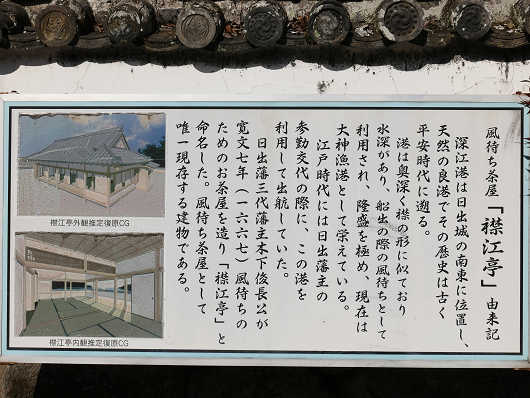 風待ち茶屋「襟江亭」由来記
深江港は日出城の南東に位置し、
天然の良港でその歴史は古く
平安時代に遡る。
港は奥深く襟の形に似ており
水深があり、船出の際の風待ちとして
利用され、隆盛を極め、現在は
大神漁港として栄えている。
江戸時代には日出藩主の
参勤交代の際に、この港を
利用して出航していた。
日出藩三代藩主木下俊長公が
寛文七年(一六六七)風待ちの
ためのお茶屋を造り「襟江亭」と
命名した。風待ち茶屋として
唯一現存する建物である。
襟江亭外観推定復原CG
襟江亭内観推定復原CG